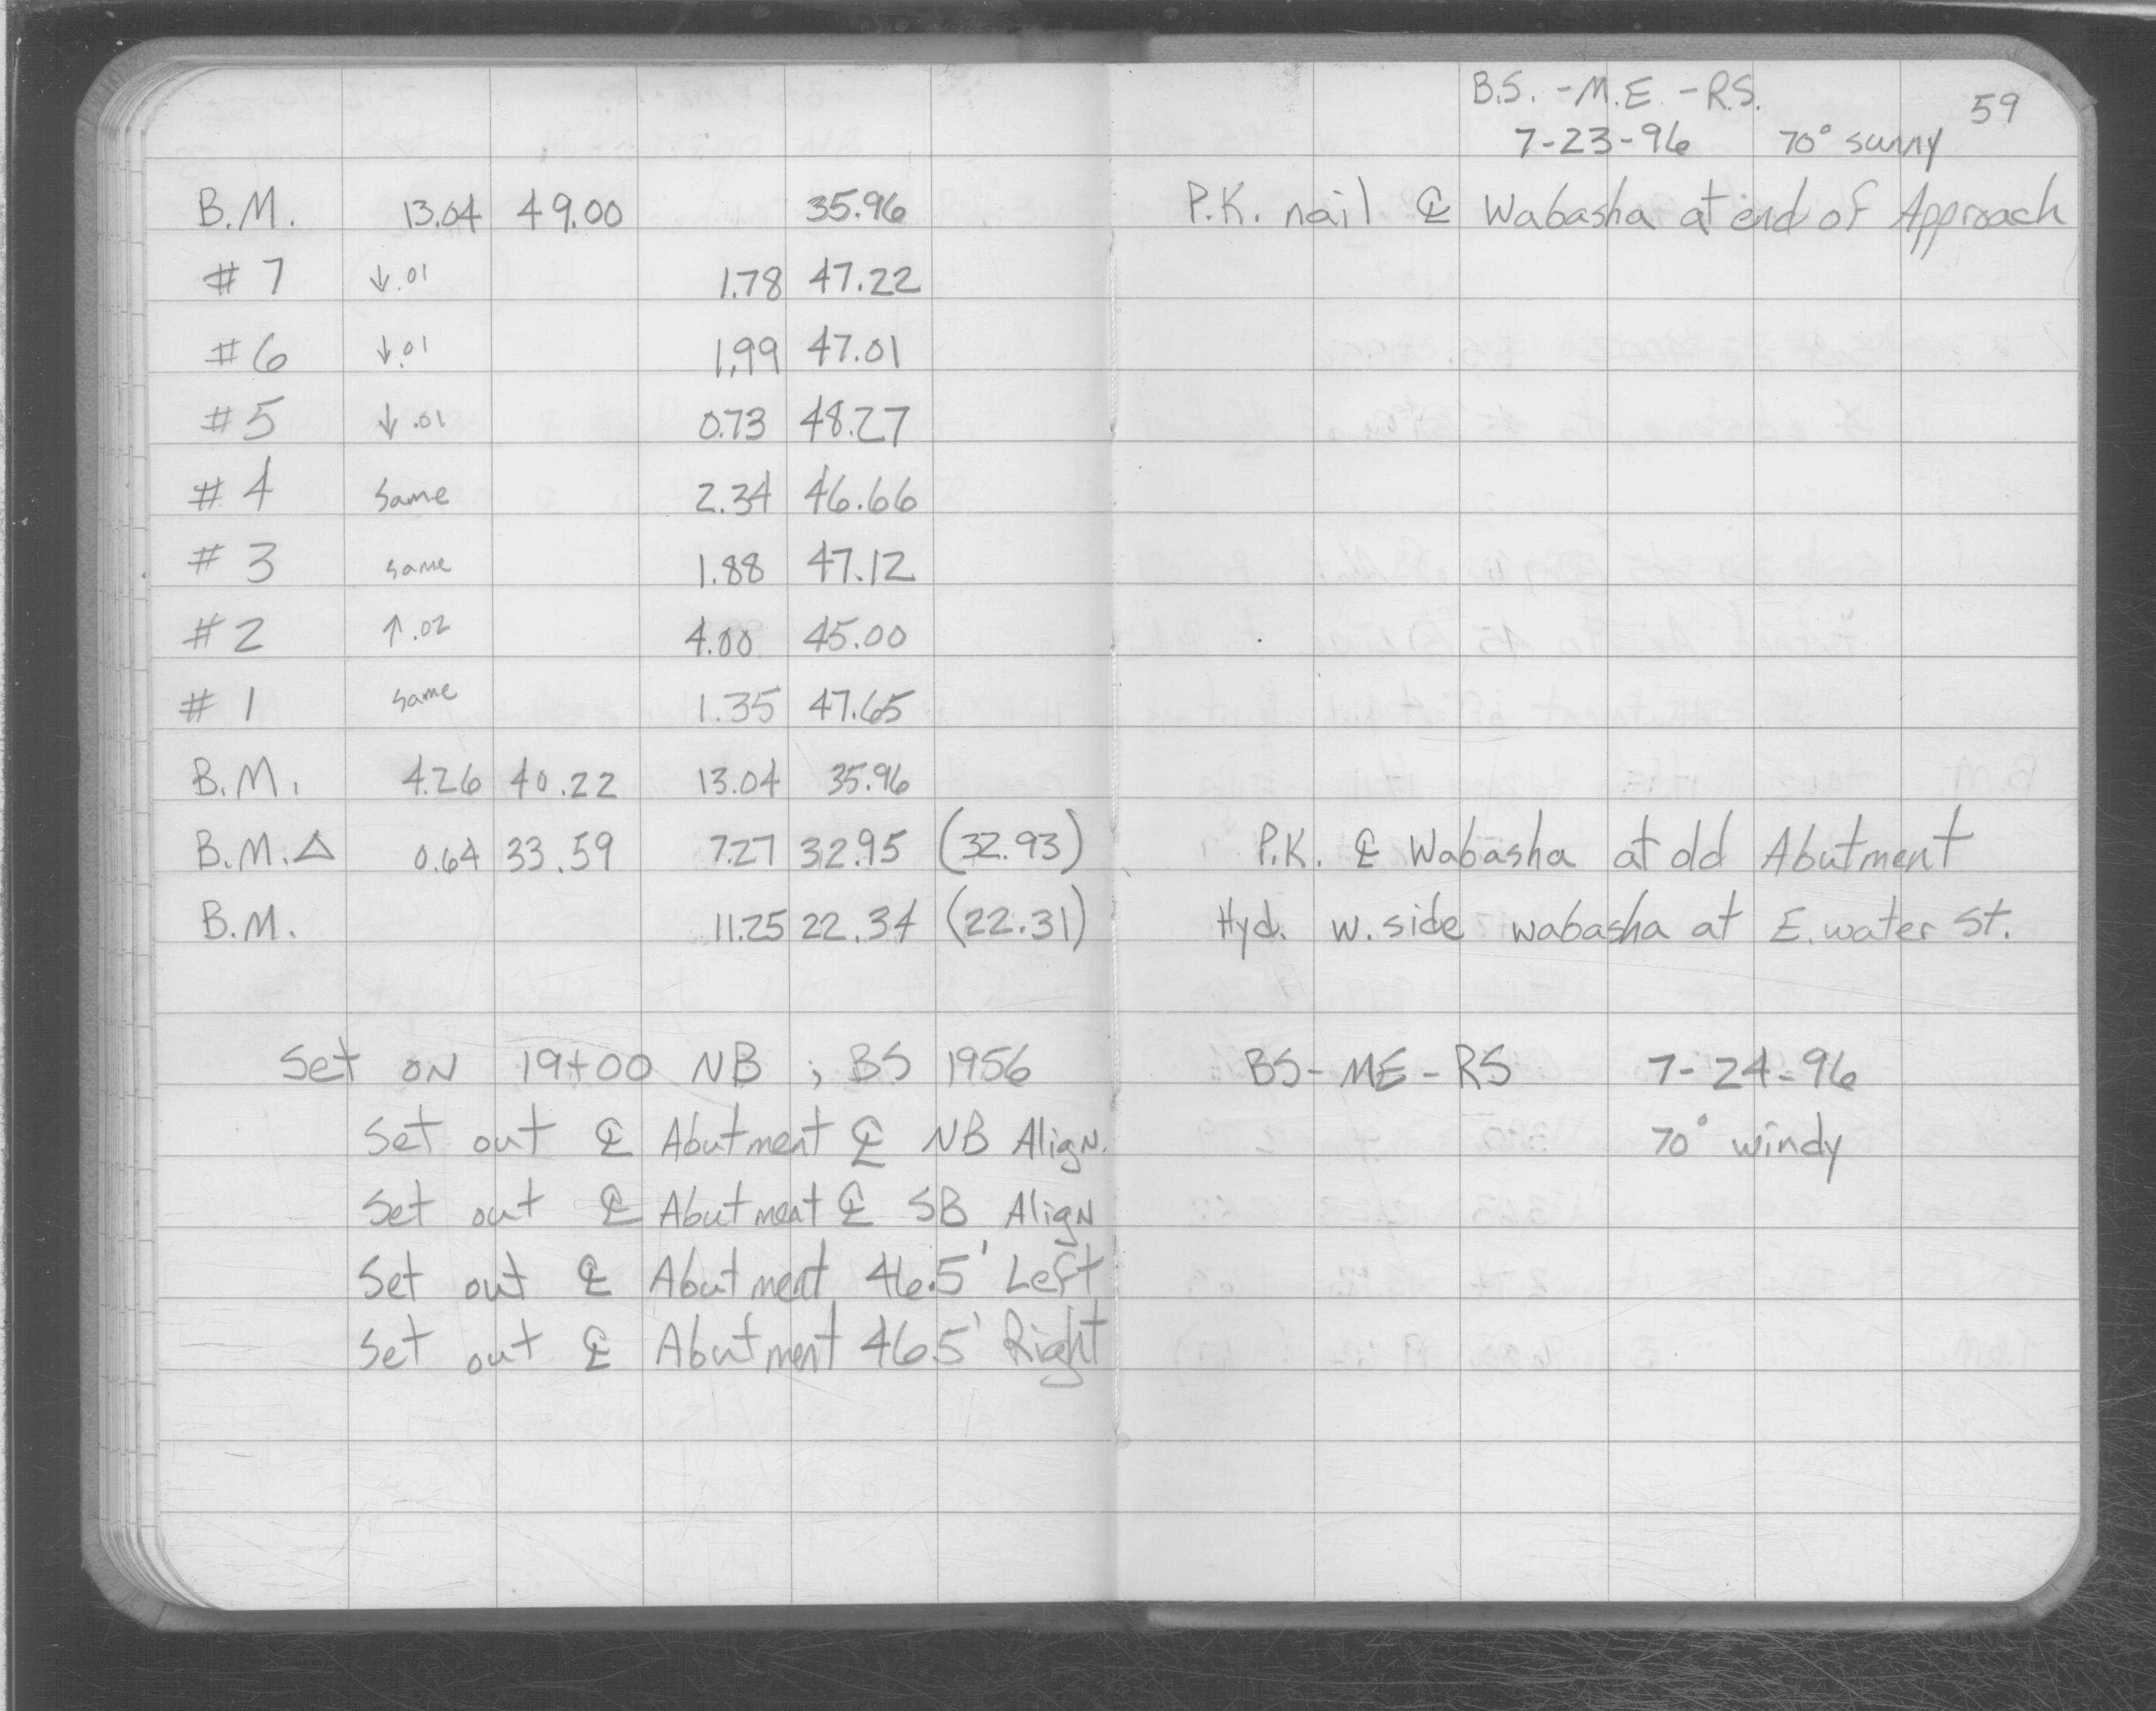 B.S. - M.E. - R.S. 59
7-23-96 70° sunny
B.M. 13.04 49.00 35.96 P.K. nail ℄ Wabasha at end of Approach
# 7 ↓.01 1.78 47.22
# 6 ↓.01 1.99 47.01
# 5 ↓.01 0.73 48.27
# 4 same 2.34 46.66
# 3 same 1.88 47.12
# 2 ↑.02 4.00 45.00
# 1 same 1.35 47.65
B.M. 4.26 40.22 13.04 35.96
B.M.△ 0.64 33.59 7.27 32.95 (32.93) P.K. ℄ Wabasha at old Abutment
B.M. 11.25 22.34 (22.31) Hyd. w. side wabasha at E. water St.
Set ON 19+00 NB ; BS 1956 BS - ME - RS 7-24-96
Set out ℄ Abutment ℄ NB Align. 70° windy
Set out ℄ Abutment ℄ SB Align
Set out ℄ Abutment 46.5' Left
Set out ℄ Abutment 46.5' Right